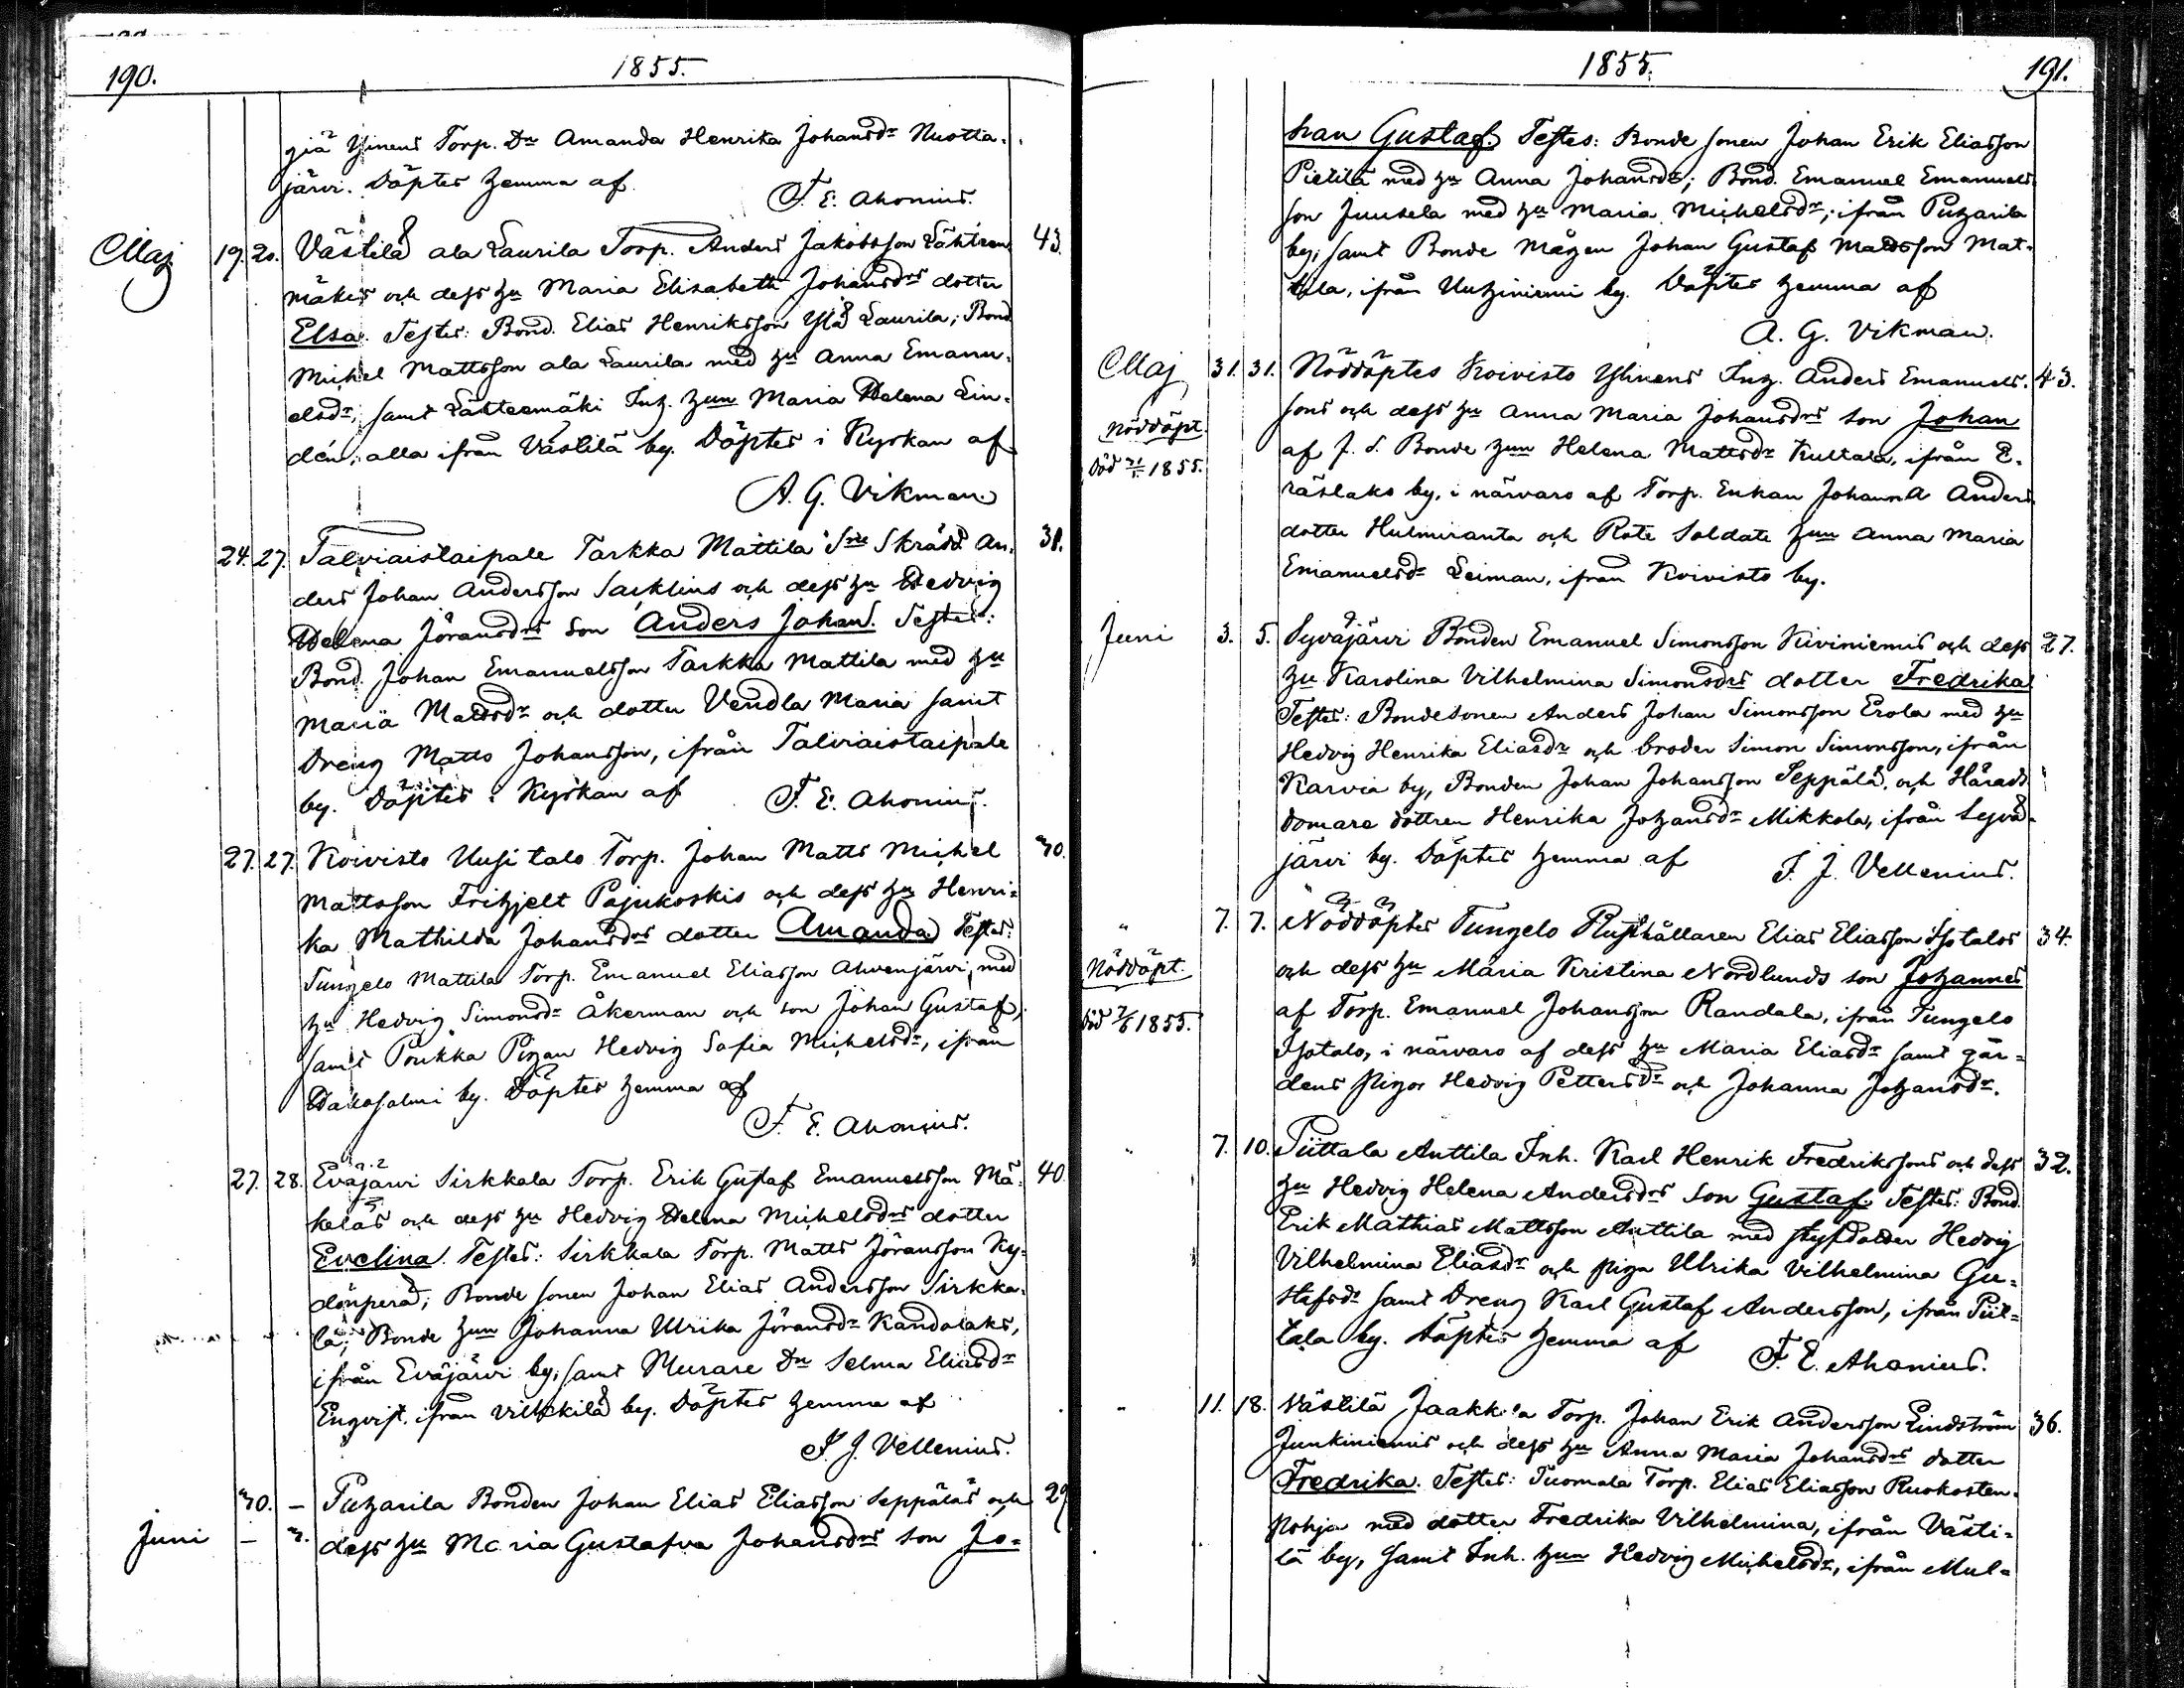 190.
1855.
Ylinens Torp. Dr Amanda Henrika Johansdr Nuotta-
järvi. Döptes hemma af
F. E. Ahonius.
Maj 19. 20. Västilä ala Laurila Torp. Anders Jakobsson Lähteen- 43.
mäkis och dess hu Maria Elisabeth Johansdrs dotter
Elsa. Testes: Bond. Elias Henriksson Ylä Laurila; Bond.
Michel Mattsson ala Laurila med hu Anna Emanu-
elsdr, samt Lähteemäki Inh. hun Maria Helena Lin-
dén, alla ifrån Västilä by. Döptes i Kyrkan af
A. G. Vikman.
24. 27. Talviaistaipale Tarkka Mattila Skrädd. An- 31.
ders Johan Andersson Sarklins och dess hu Hedvig
Helena Jöransdrs son Anders Johan. Testes:
Bond. Johan Emanuelsson Tarkka Mattila med hu
Maria Matsdr och dotter Vendla Maria samt
Dreng Matts Johansson, ifrån Talviaistaipale
by. Döptes i Kyrkan af F. E. Ahonius.
27. 27. Koivisto Uusitalo Torp. Johan Matts Michel 30.
Mattsson Frihjelt Pajukoskis och dess hu Henri-
ka Mathilda Johansdrs dotter Amanda. Testes:
Tungelo Mattila Torp. Emanuel Eliasson Ahvenjärvi, med
hu Hedvig Simonsdr Åkerman och son Johan Gustaf,
samt Poukka Pigan Hedvig Sofia Michelsdr, ifrån
Hakosalmi by. Döptes hemma af
F. E. Ahonius.
27. 28. Eväjärvi Sirkkala Torp. Erik Gustaf Emanuelsson Mä- 40.
keläs och dess hu Hedvig Helena Michelsdrs dotter
Evelina. Testes: Sirkkala Torp. Matts Jöransson Ky-
dönperä; Bonde sonen Johan Elias Andersson Sirkka-
la; Bonde hun Johanna Ulrika Jöransdr Kandolaks,
ifrån Eväjärvi by; samt Murare Dr Selma Eliasdr
Engvist, ifrån Vilkkilä by. Döptes hemma af
F. J. Vellenius.
30. — Puharila Bonden Johan Elias Eliasson Seppäläs och 29
Juni — 3. dess hu Maria Gustafva Johansdrs son Jo-
1855.
191.
han Gustaf. Testes: Bonde sonen Johan Erik Eliasson
Pietilä med hu Anna Johansdr; Bond. Emanuel Emanuels-
son Juusela med hu Maria Michelsdr; ifrån Puharila
by; samt Bonde Mågen Johan Gustaf Matsson Mat-
tila, ifrån Uuhiniemi by. Döptes hemma af
A. G. Vikman.
Maj 31. 31. Nöddöptes Koivisto Ylinens Inh. Anders Emanuels- 43.
sons och dess hu Anna Maria Johansdrs son Johan
nöddöpt.
af f. d. Bonde hun Helena Mattsdr Kultala, ifrån E-
Död 31/5 1855.
räslaks by, i närvaro af Torp. Enkan Johanna Anders
dotter Hulmiranta och Rote Soldate hun Anna Maria
Emanuelsdr Leiman, ifrån Koivisto by.
Juni 3. 5. Syväjärvi Bonden Emanuel Simonsson Kiviniemis och dess 27.
hu Karolina Vilhelmina Simonsdrs dotter Fredrika
Testes: Bondesonen Anders Johan Simonsson Erola med hu
Hedvig Henrika Eliasdr och broder Simon Simonsson, ifrån
Karvia by, Bonden Johan Johansson Seppälä, och Härads
domare dottren Henrika Johansdr Mikkola, ifrån Syvä-
järvi by. Döptes hemma af F. J. Vellenius.
" 7. 7. Nöddöptes Tungelo Rusthållaren Elias Eliasson Isotalos 34.
Nöddöpt.
och dess hu Maria Kristina Nordlunds son Johannes
af Torp. Emanuel Johansson Randala, ifrån Tungelo
död 7/6 1855.
Isotalo, i närvaro af dess hu Maria Eliasdr samt går-
dens pigor Hedvig Pettersdr och Johanna Johansdr.
" 7. 10. Piittala Anttila Inh. Karl Henrik Fredrikssons och dess 32.
hu Hedvig Helena Andersdrs son Gustaf. Testes: Bond.
Erik Mathias Mattsson Anttila med styfdotter Hedvig
Vilhelmina Eliasdr och piga Ulrika Vilhelmina Gu-
stafsdr samt Dreng Karl Gustaf Andersson, ifrån Piit-
tala by. Döptes hemma af F. E. Ahonius.
" 11. 18. Västilä Jaakkola Torp. Johan Erik Andersson Lindström 36.
Junkiniemis och dess hu Anna Maria Johansdrs dotter
Fredrika. Testes: Tuomala Torp. Elias Eliasson Ruokosten-
pohja med dotter Fredrika Vilhelmina, ifrån Västi-
lä by, samt Inh. hun Hedvig Michelsdr, ifrån Mul-